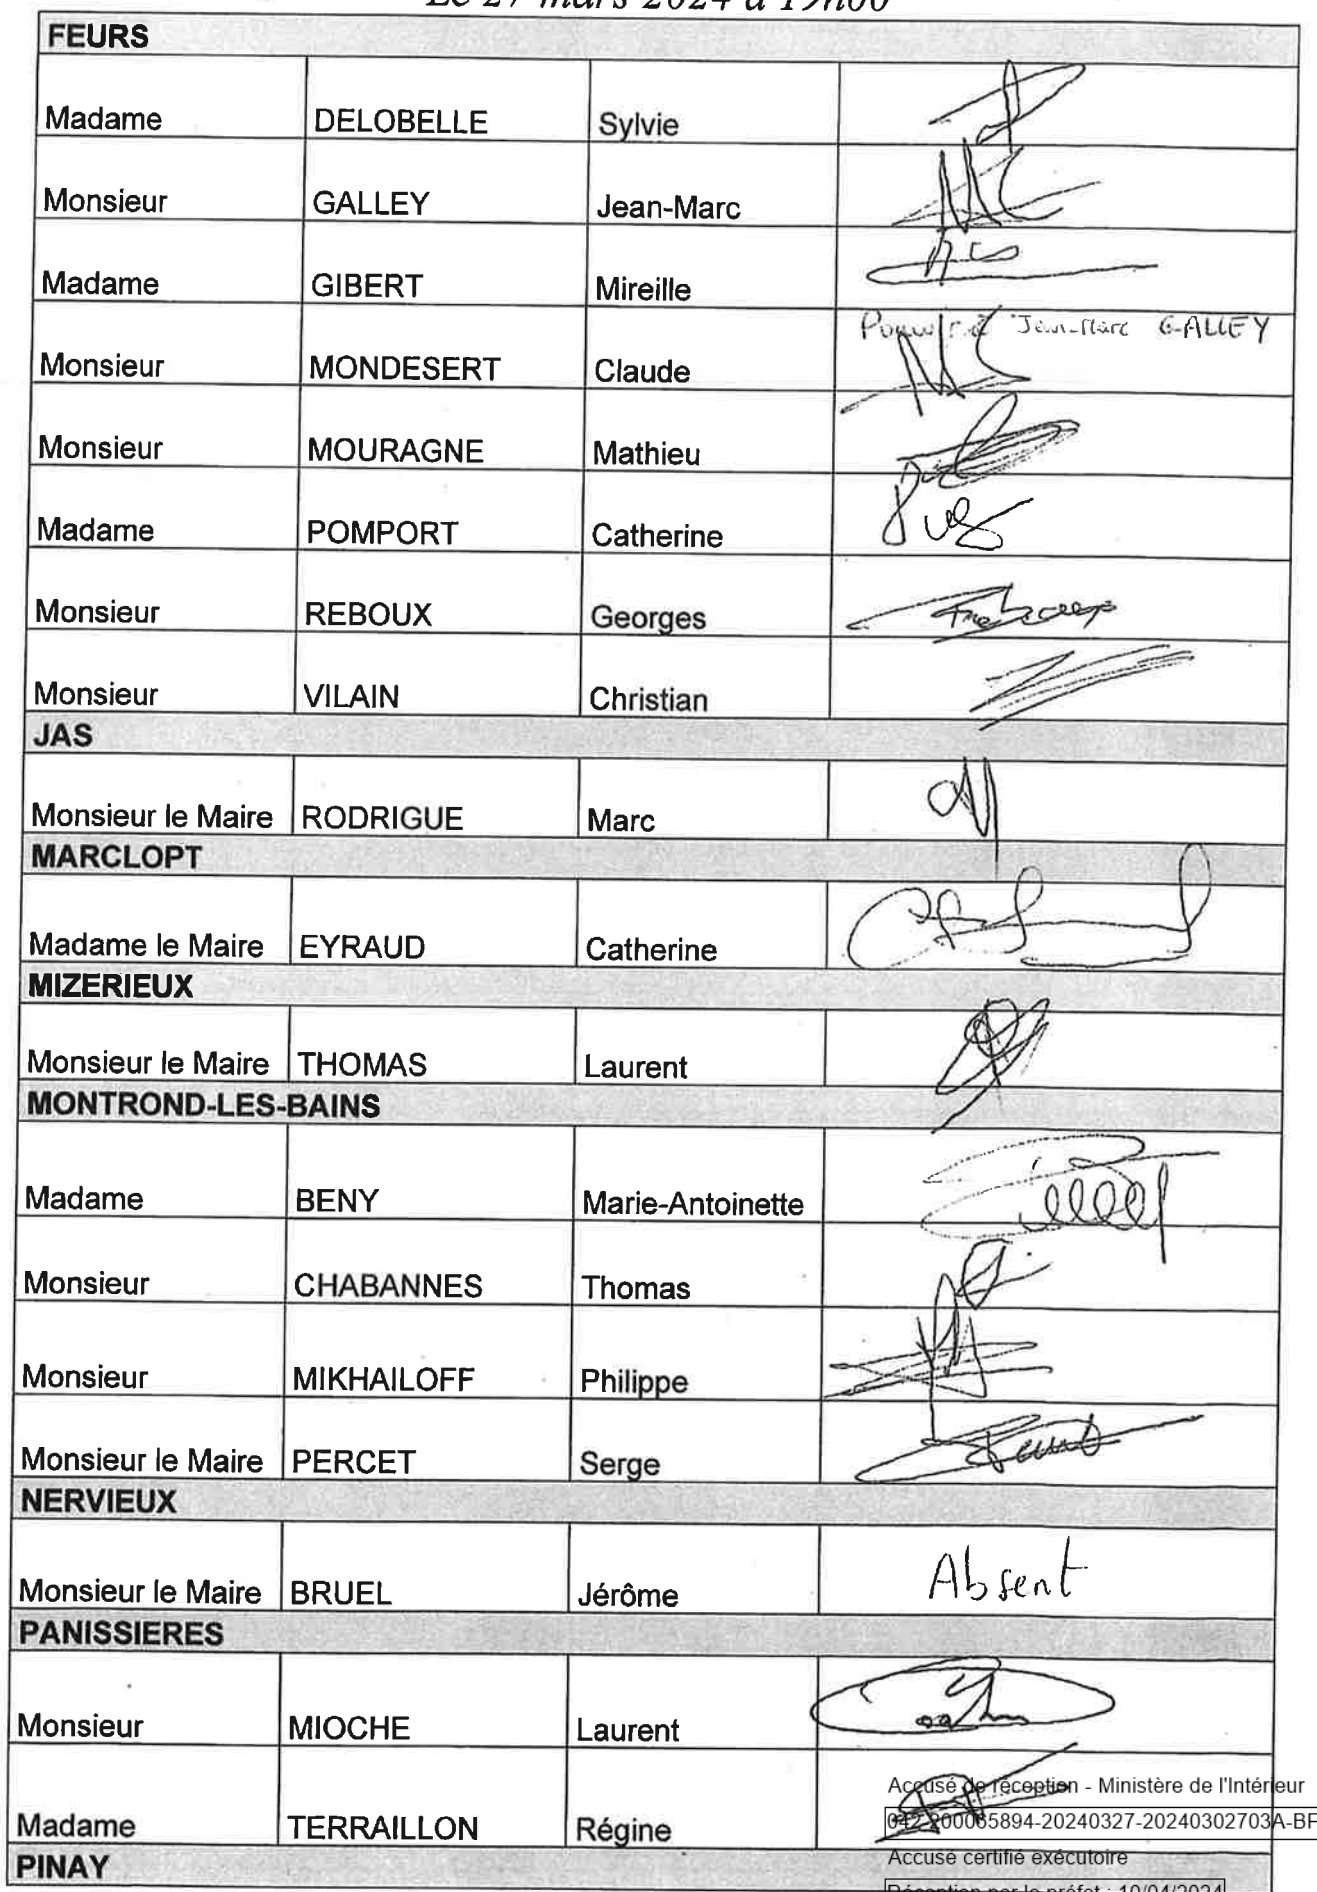 Le 27 mars 2024 à 19h00
FEURS
Madame DELOBELLE Sylvie
Monsieur GALLEY Jean-Marc
Madame GIBERT Mireille
Jean-Marc GALLEY
Monsieur MONDESERT Claude
Monsieur MOURAGNE Mathieu
Madame POMPORT Catherine
Monsieur REBOUX Georges
Monsieur VILAIN Christian
JAS
Monsieur le Maire RODRIGUE Marc
MARCLOPT
Madame le Maire EYRAUD Catherine
MIZERIEUX
Monsieur le Maire THOMAS Laurent
MONTROND-LES-BAINS
Madame BENY Marie-Antoinette
Monsieur CHABANNES Thomas
Monsieur MIKHAILOFF Philippe
Monsieur le Maire PERCET Serge
NERVIEUX
Monsieur le Maire BRUEL Jérôme Absent
PANISSIERES
Monsieur MIOCHE Laurent
Madame TERRAILLON Régine
Accusé de réception - Ministère de l'Intérieur
042-200065894-20240327-20240302703A-BF
Accusé certifié exécutoire
PINAY
Réception par le préfet : 10/04/2024